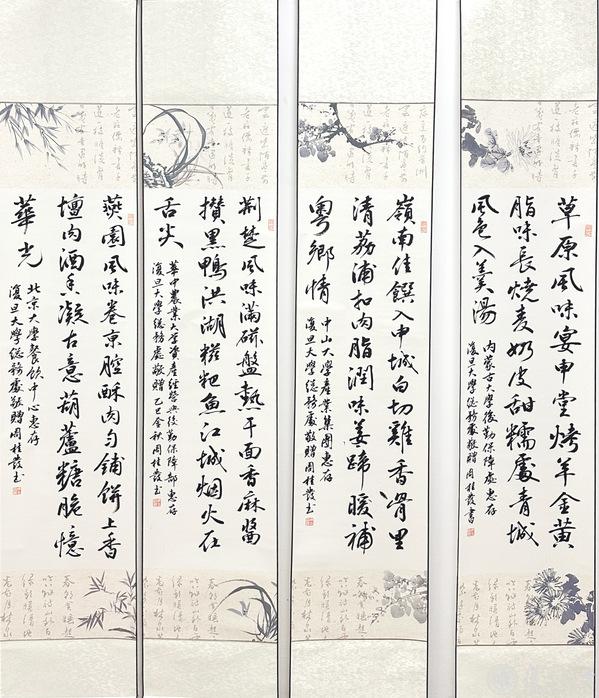 草原風味宴申堂烤羊金黄
脂味長燒麦奶皮甜糯處青城
風色入羹湯
内蒙古大學後勤保障處惠存
復旦大學總務處敬贈周桂發書
嶺南佳饌入申城白切雞香滑里
清荔浦扣肉脂潤味姜蹄暖補
粤鄉情
中山大學産業集團惠存
復旦大學總務處敬贈周桂發書
荆楚風味滿磁盤熱干面香麻醬
攢黑鴨洪湖糍粑魚江城烟火在
舌尖
華中農業大學資産經營與後勤保障部惠存
復旦大學總務處敬贈乙巳金秋周桂發書
燕園風味卷京腔酥肉勻鋪餅上香
壇肉酒香凝古意葫蘆糖脆憶
華光
北京大學餐飲中心惠存
復旦大學總務處敬贈周桂發書